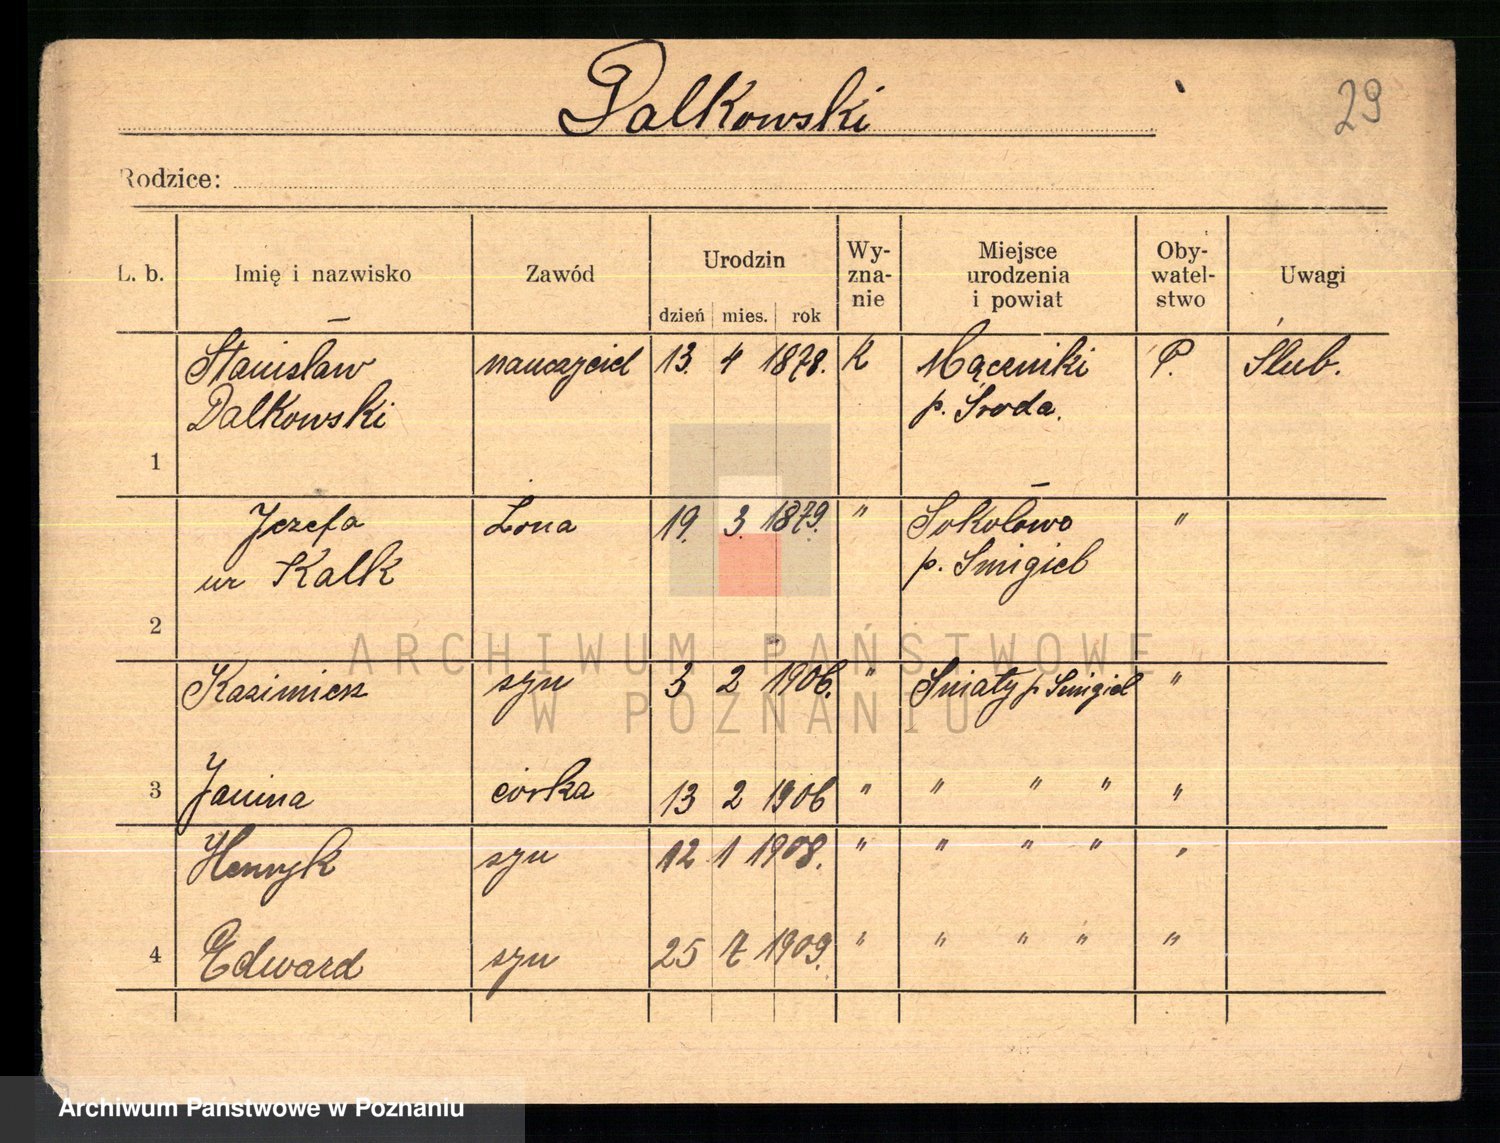 Dalkowski
29
Rodzice:
L. b. Imię i nazwisko Zawód Urodzin dzień mies. rok Wy-zna-nie Miejsce urodzenia i powiat Oby-watel-stwo Uwagi
Stanisław nauczyciel 13. 4 1878. k Mączniki P. Ślub.
Dalkowski p. Środa.
1
Jozefa Żona 19. 3. 1879. " Sokołowo "
ur Kalk p. Smigiel
2
Kazimierz syn 3 2 1906. " Sniaty p Smigiel "
3 Janina córka 13 2 1906 " " " " "
Henryk syn 12 1 1908. " " " " "
4 Edward syn 25 7 1909. " " " " "
ARCHIWUM PAŃSTWOWE
W POZNANIU
Archiwum Państwowe w Poznaniu